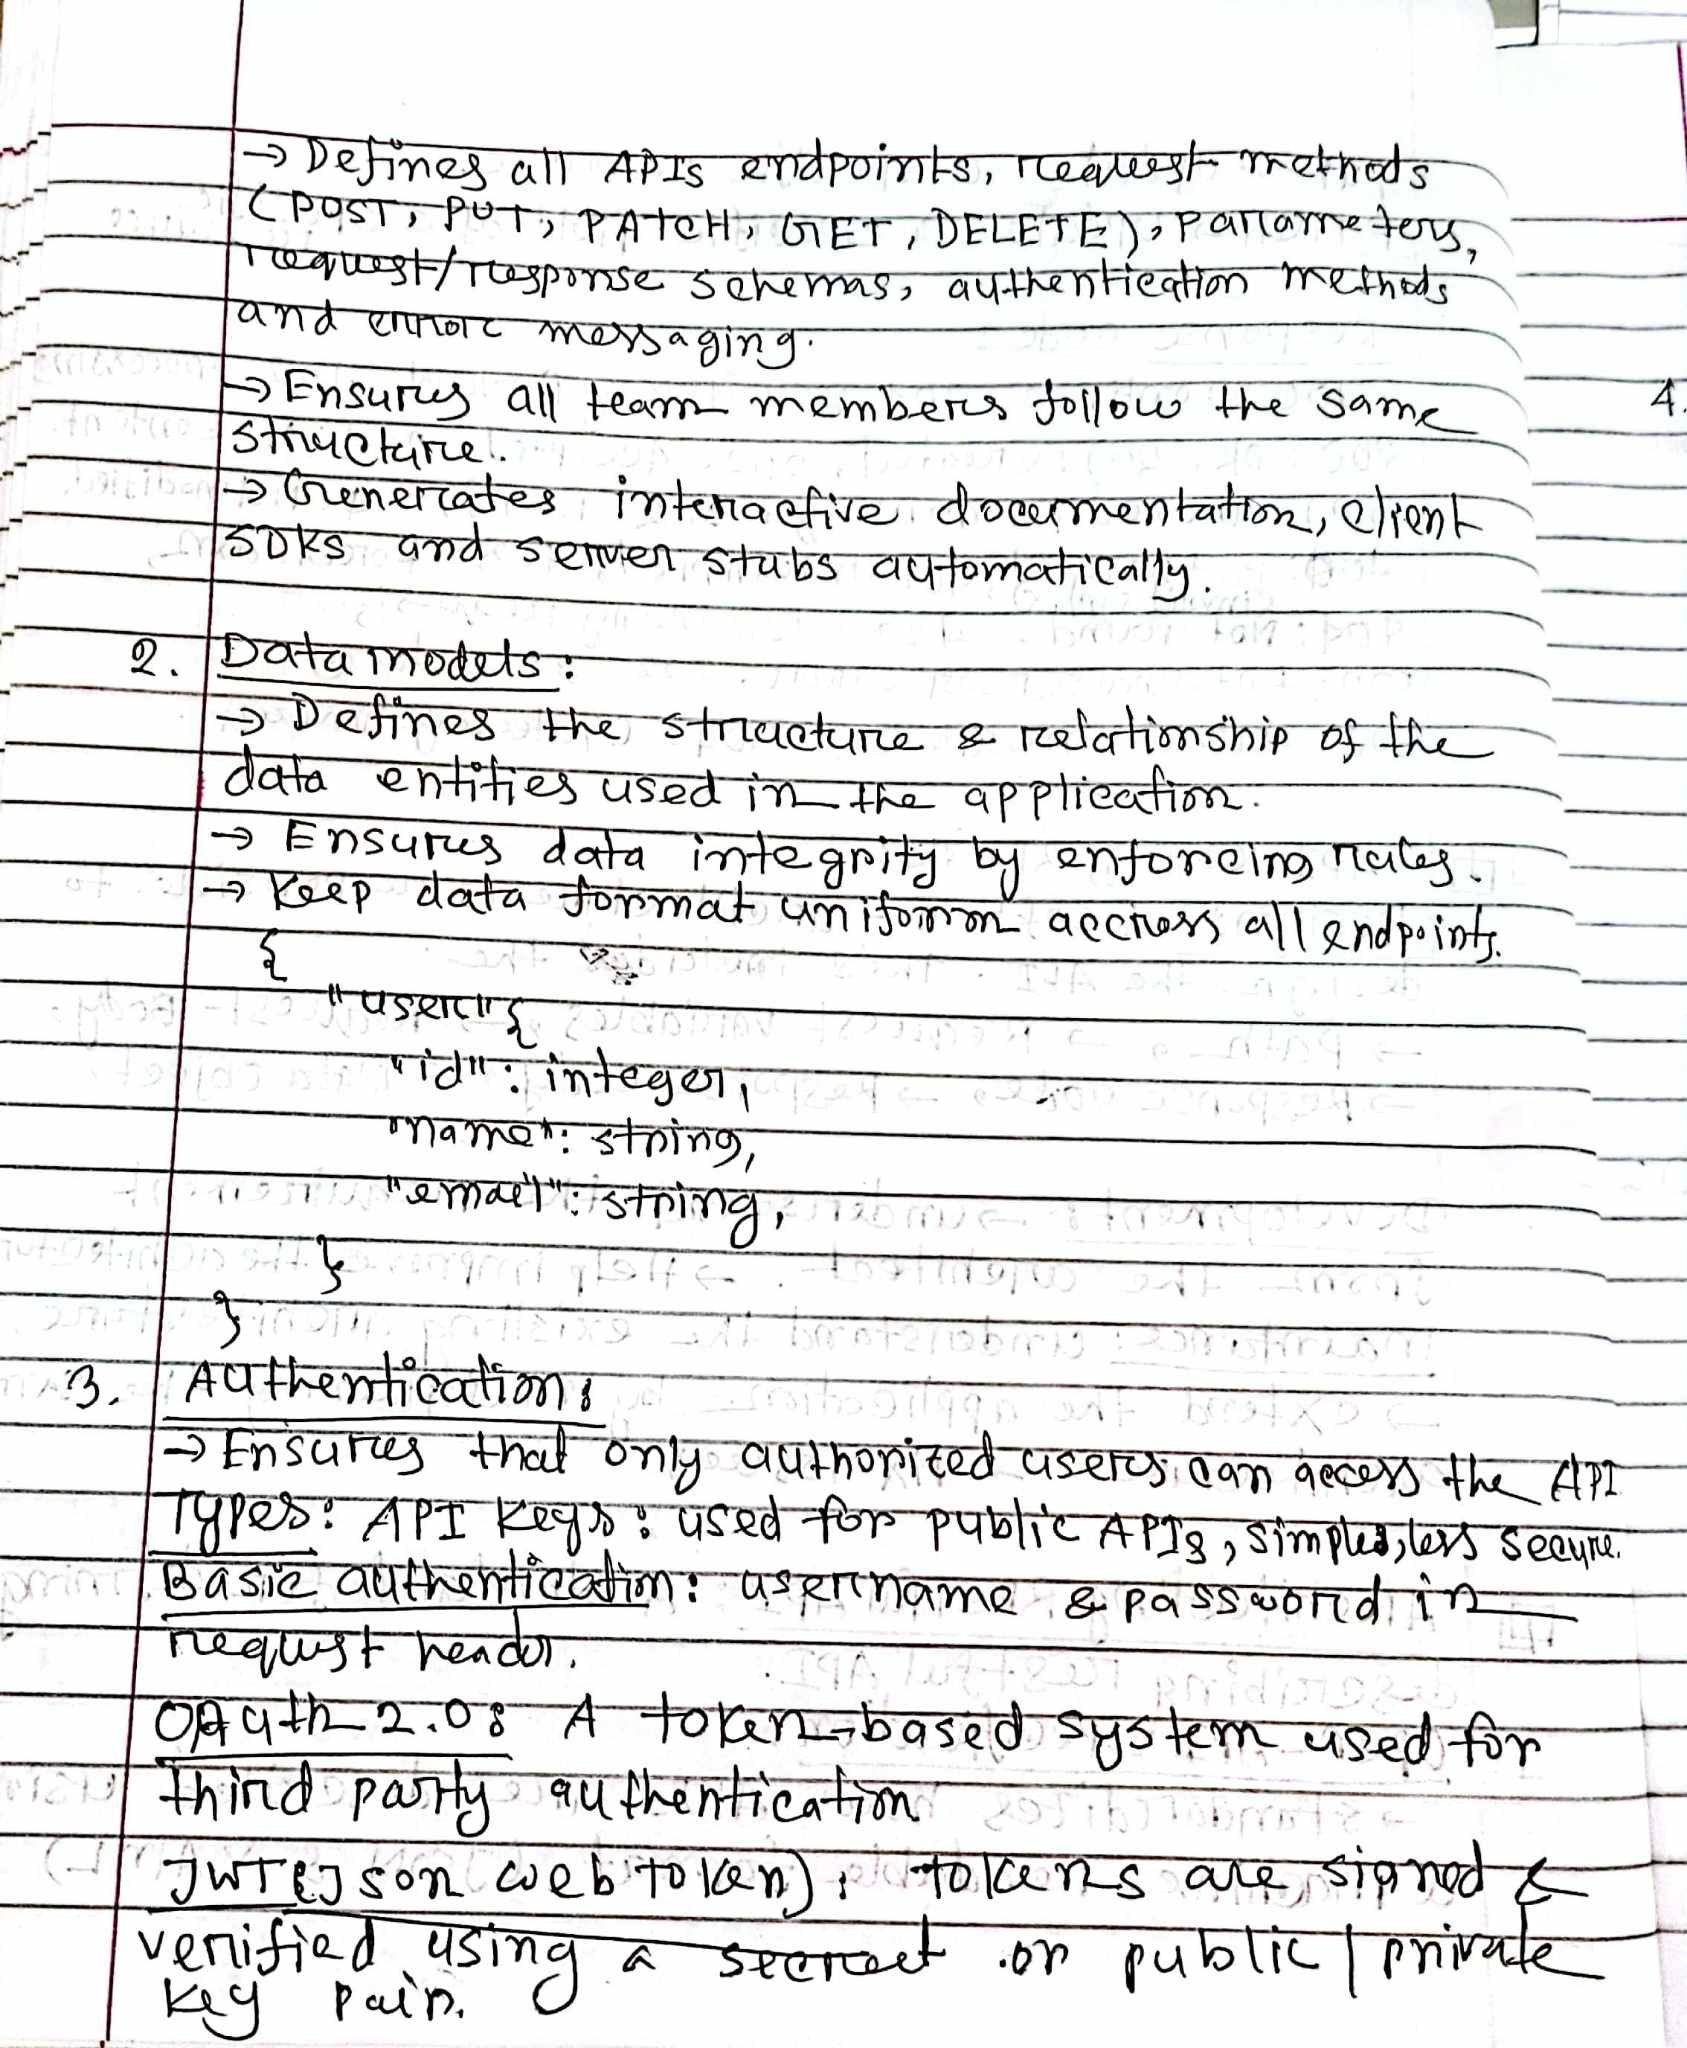 → Defines all APIs endpoints, request methods
(POST, PUT, PATCH, GET, DELETE), Parameters,
request/response schemas, authentication methods
and error messaging.
→ Ensures all team members follow the same
structure.
→ Generates interactive documentation, client
SDKs and server stubs automatically.
2. Data models:
→ Defines the structure & relationship of the
data entities used in the application.
→ Ensures data integrity by enforcing rules.
→ Keep data format uniform accross all endpoints.
{
"user"{
"id": integer,
"name": string,
"email": string,
}
}
3. Authentication:
→ Ensures that only authorized users can access the API
Types: API Keys: used for public APIs, simples, less secure.
Basic authentication: username & password in
request header.
OAuth 2.0: A token-based system used for
third party authentication
JWT(Json web token): tokens are signed &
verified using a secret or public/private
key pair.
4.